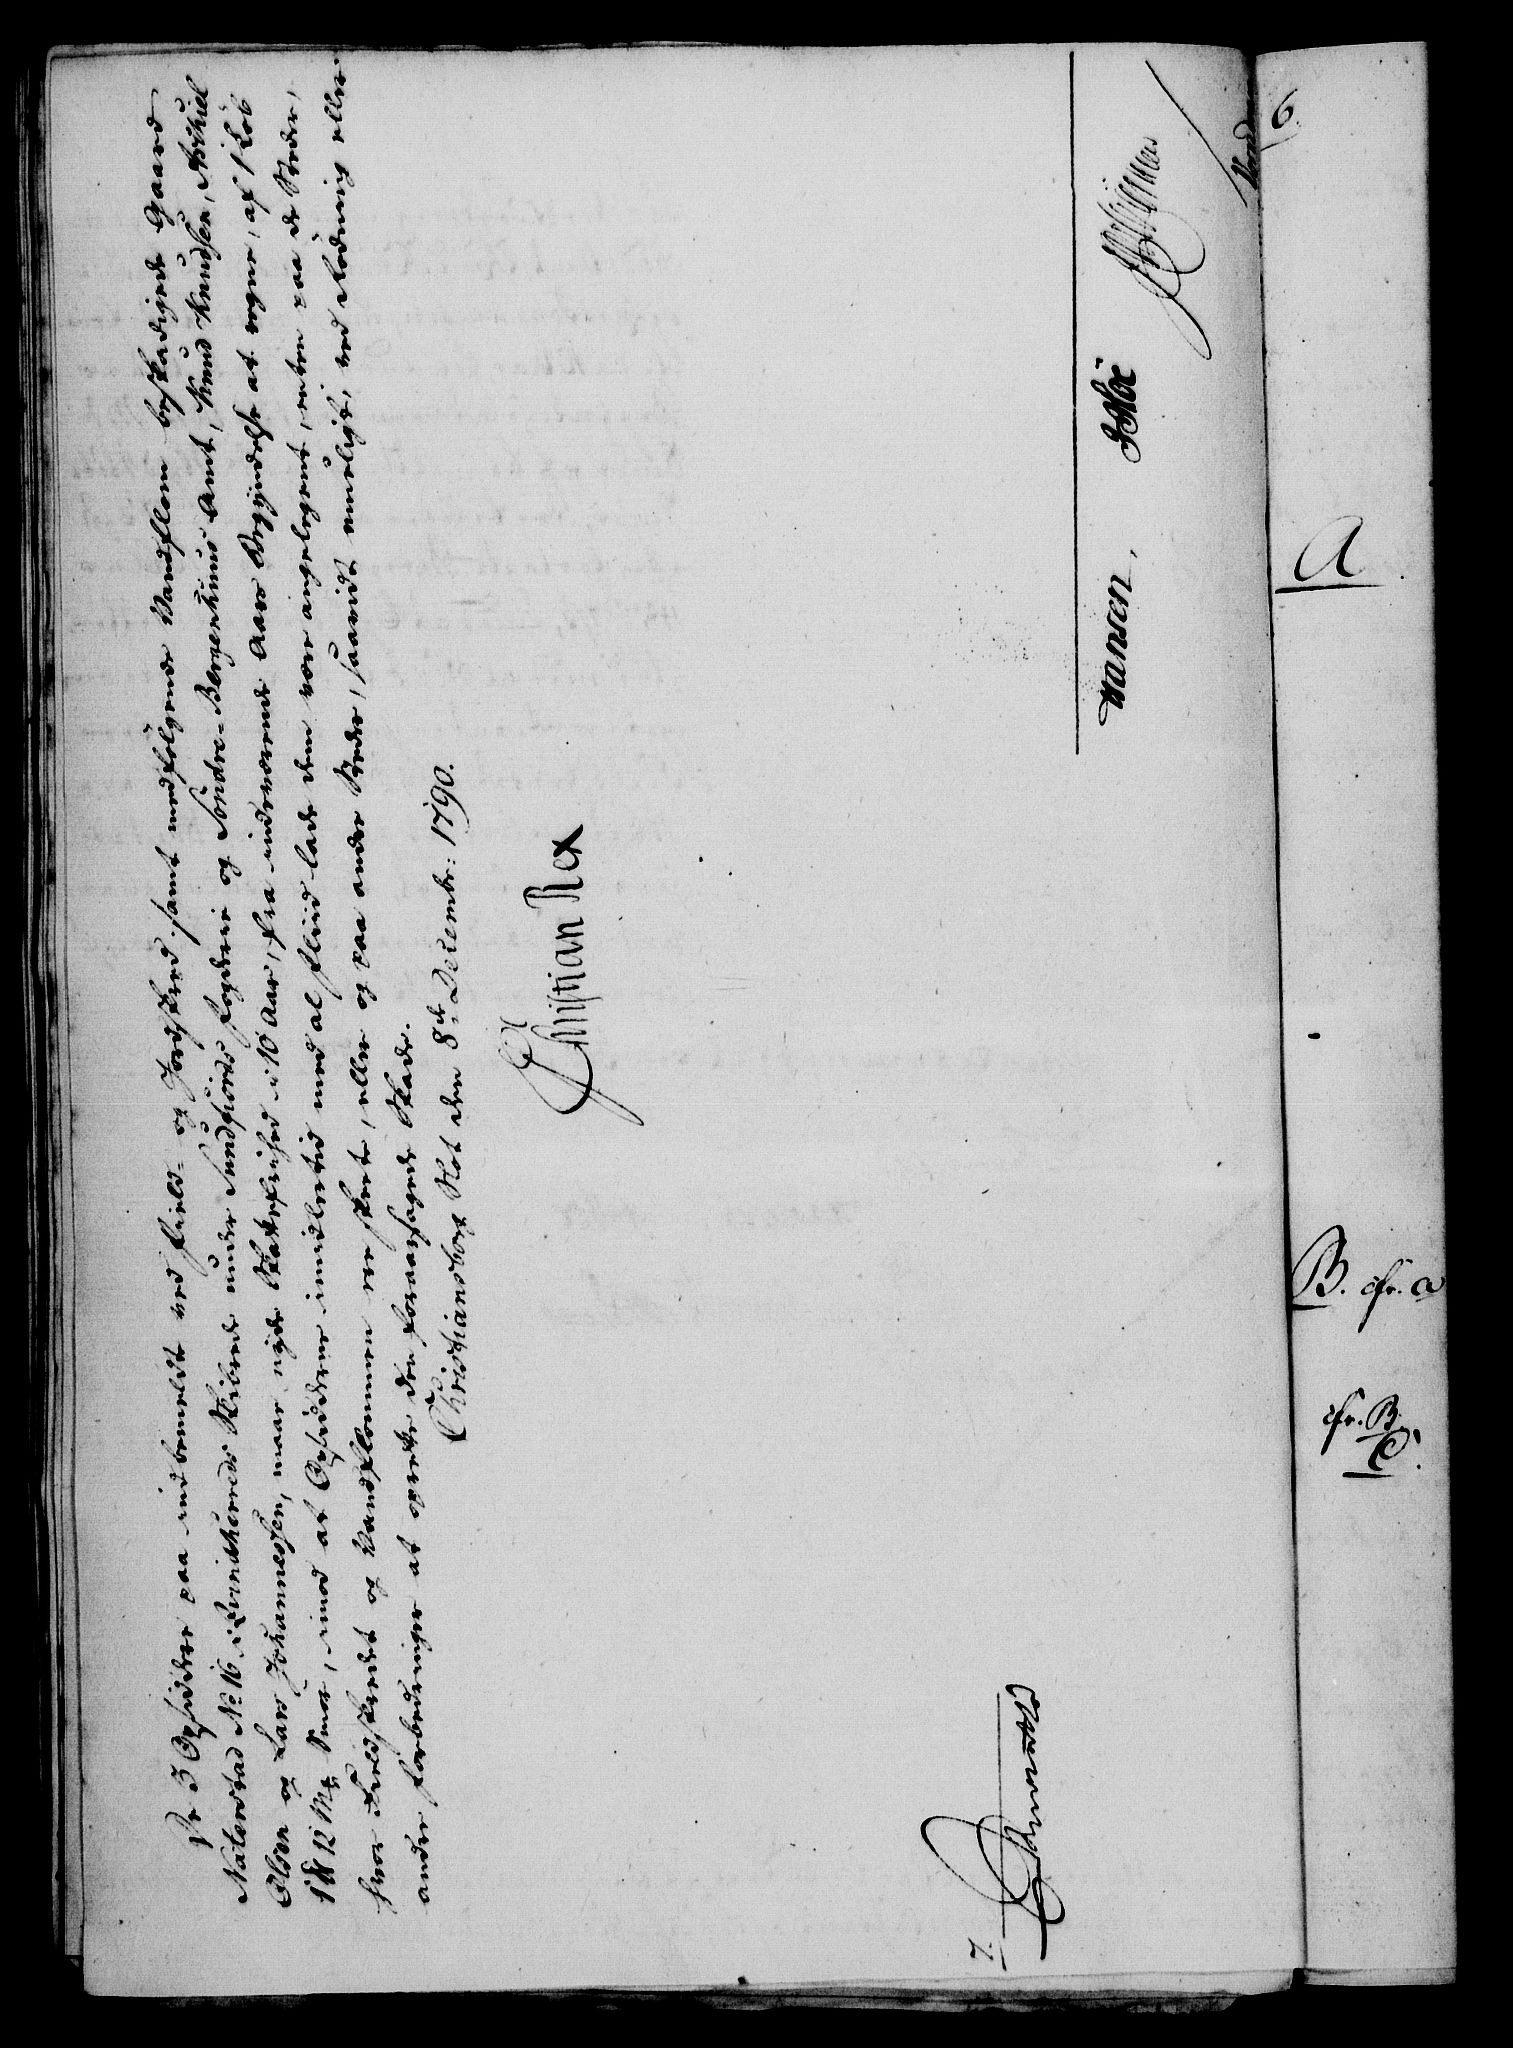 De 3 Opsiddere paa indbemeldte ved Field- og Jordskred samt medfølgende Vandflom beskadigede Gaard
Naterstad No 16 i Qvindherreds Skibrede under Sundfiords Fogderie og Söndre-Bergenhuus Amt, Knud Knudsen, Michel
Olsen og Lars Johannessen, maae nyde Skattefrihed i 10 Aar, fra indeværende Aars Begyndelse at regne, af 1 Løb
1 12 Mrk Smør, imod at Opsidderne imidlertid med al Fliid lade dem være angelegent, enten paa de Steder,
hvor Fieldskredet og Vandflommen ere skeete, eller og paa andre Steder, saavidt mueligt, ved Rödning eller
andre Forbedringer at oprette den foraarsagede Skade.
Christiansborg Slot den 8de Decembr: 1790.
Christian Rex
7.
Wansen, JMöe
6
A
B. cfr. a
cfr. B.
C.